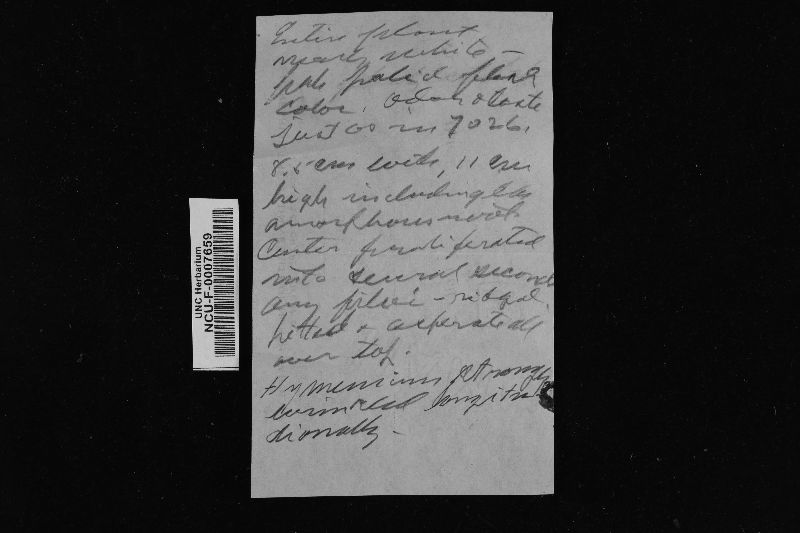 Entire plant
nearly white -
pale pallid flesh
color. Odor & taste
just as in 7026.
8.5 cm wide, 11 cm
high including the
amorphous root.
Center proliferated
into several second
ary pilei - ridged,
pitted & asperate all
over top.
Hymenium strongly
wrinkled longitu
dionally -
UNC Herbarium
NCU-F-0007659